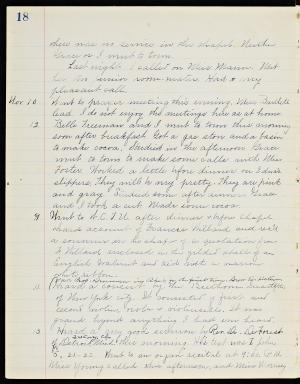 18
there was no service in the chapel. Neither
Grace or I went to town.
Last night I called on Miss Mann. Met
her two senior room-mates. Had a very
pleasant call.
Nov 10. Went to prayer meeting this evening. Miss Bartlett
lead. I do not enjoy the meetings here as at home
12. Belle Freeman and I went to town this morning
soon after breakfast. Got a gas stove and a basin
to make cocoa. Studied in the afternoon. Grace
went to town to make some calls with Miss
Foster. Worked a little before dinner on Edna's
slippers. They will be very pretty. They are pink
and gray. Studied some after dinner. Grace
and I took a cut. Made some cocoa.
9. Went to W.C.T.U. after dinner & before chapel
heard account of Frances Willard and sold
a souvenir in the shape of a quotation from
F. Willard enclosed in the gilded shell of an
English walnut and tied with a narrow
white ribbon.
11. Heard a concert by the Beethoven Quartette
of New York city. It consisted of first and
second violins, viola & violoncello. It was
grand, beyond anything I had ever heard.
13 Heard a very good sermon by Rev. Dr. DeForest
this morning. His text was I John
5, 21-22. Went to an organ recital at
Miss Young called this afternoon, and Miss